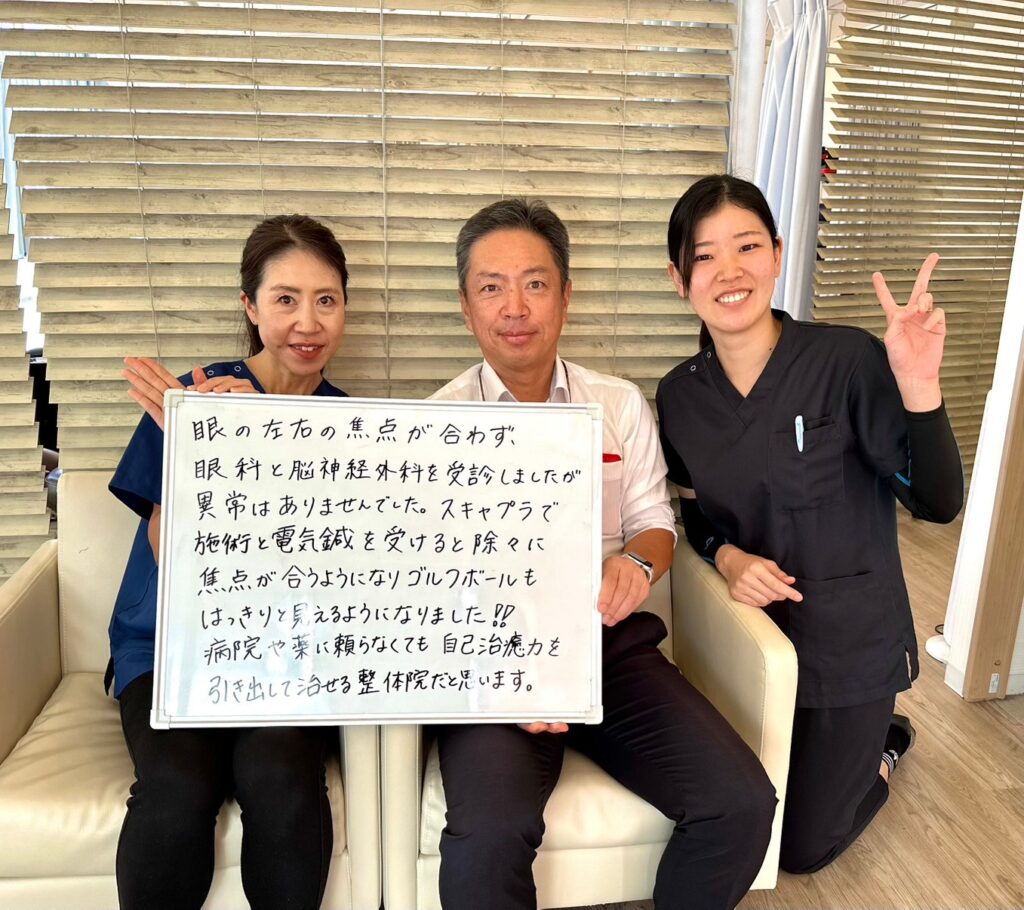 眼の左右の焦点が合わず、
眼科と脳神経外科を受診しましたが
異常はありませんでした。スキャプラで
施術と電気鍼を受けると除々に
焦点が合うようになりゴルフボールも
はっきりと見えるようになりました!!
病院や薬に頼らなくても自己治癒力を
引き出して治せる整体院だと思います。